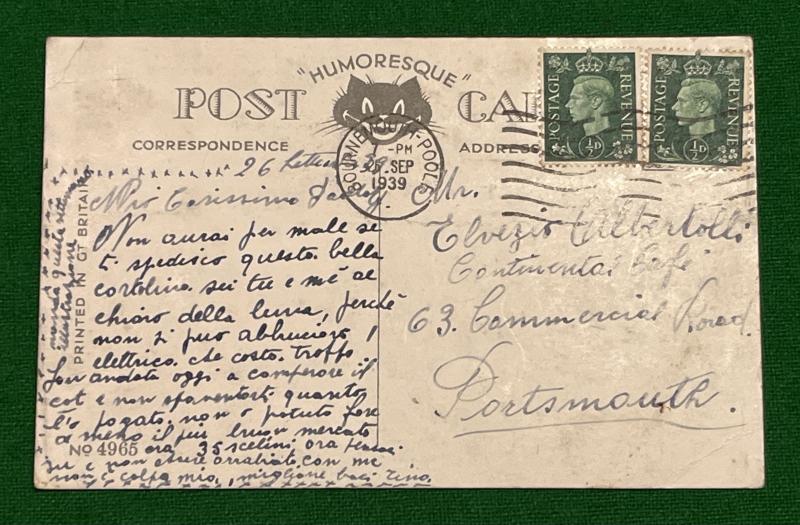 "HUMORESQUE"
POST
CORRESPONDENCE
ADDRESS
POSTAGE
REVENUE
½D
POSTAGE
REVENUE
½D
BOURNEMOUTH-POOLE
PM
SEP
1939
PRINTED IN GT BRITAIN
26
Mio Carissimo
Non aurai per male se
ti spedisco questa bella
cartolina sei tu e me al
chiaro della luna, perché
non si puo abbruciare
elettrico che costa troppo
andata oggi a comperare il
cot e non spaventarti quanto
l'o pagato, non o potuto fare
a meno il piu buon mercato
No 4965 era 35 scelini ora
e non essere arrabiato con me
non é colpa mia, migliore baci
Mr.
Elvezio Albertolli
Continental Café
63. Commercial Road
Portsmouth.